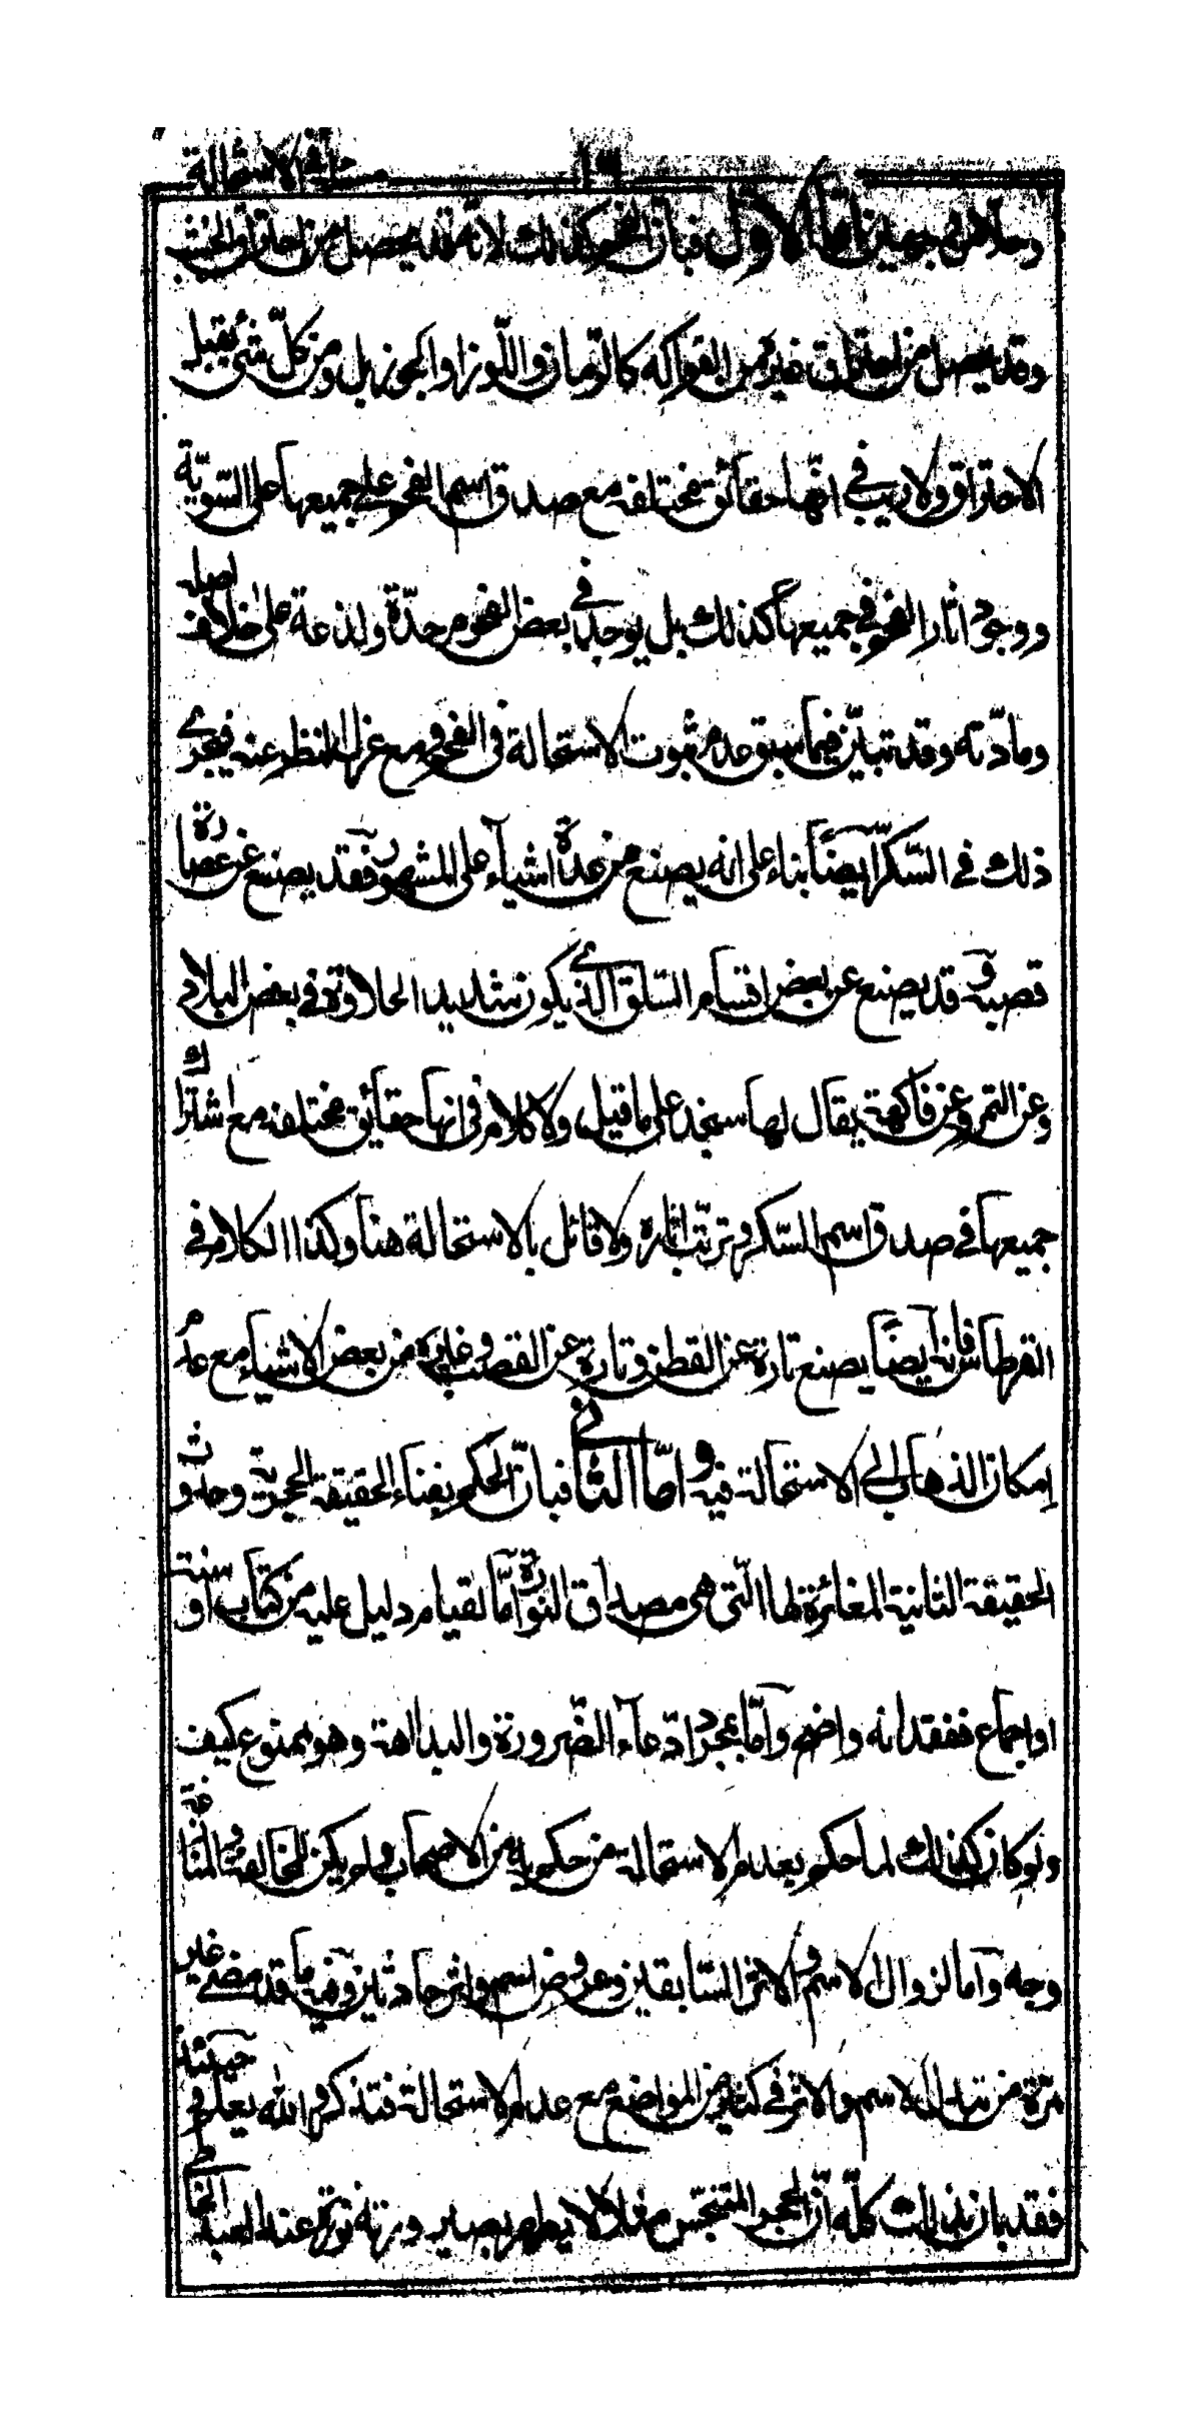 ١٩ مسئلة الاستحالة
وحلا من جهتين اما الاول فبان الفحم كذلك لانه قد يحصل من احتراق الخشب
وقد يحصل من احتراق غيره من الفواكه كالرّمان واللّوز او الجوز بل ومن كلّ شئ يقبل
الاحتراق ولا ريب في انّها حقائق مختلفه مع صدق اسم الفحم على جميعها على السّويّة
ووجود اثار الفحم في جميعها كذلك بل يوجد في بعض الفحوم حدّة ولذعة على خلاف اصله
ومادّته وقد تبيّن فيما سبق عدم ثبوت الاستحالة في الفحم ومع عزل النظر عنه فيجرى
ذلك في السّكر ايضاً بناء على انه يصنع من عدة اشياء على المشهور فقد يصنع عن عصارة
قصبه وقد يصنع عن بعض اقسام السّلق الذى يكون شديد الحلاوة في بعض البلاد
وعن التمر وعن فاكهة يقال لها سنجد على ما قيل ولا كلام في انها حقايق مختلفه مع اشتراك
جميعها في صدق اسم السّكر وترتّب اثاره ولا قائل بالاستحالة هنا وكذا الكلام في
القرطاس فانه ايضاً يصنع تارة عن القطن وتارة عن القصب وغيره من بعض الاشياء مع عدم
امكان الذهاب الى الاستحالة فيه وامّا الثانى فبانّ الحكم بفناء الحقيقة الحجريّة وحدوث
الحقيقة الثانية المغائرة لها الّتى هى مصداق النورة امّا لقيام دليل عليه من كتاب او سنة
او اجماع ففقدانه واضح وامّا بمجرد ادّعاء الضّرورة والبداهة وهو ممنوع كيف
ولو كان كذلك لما حكم بعدم الاستحالة من حكم به من الاصحاب ولم يكن للمخالفة والمنازعة
وجه وامّا لزوال الاسم والاثر السّابقين وعروض اسم واثر حادثين وفيه ما قد مضى غير
مرّة من تبدل الاسم والاثر في كثير من المواضع مع عدم الاستحالة فتذكر والله يعلم وحينئذ
فقد بان بذلك كلّه انّ الحجر المتنجّس مثلا لا يطهر بصيرورته نورة عند العبد الخاطى